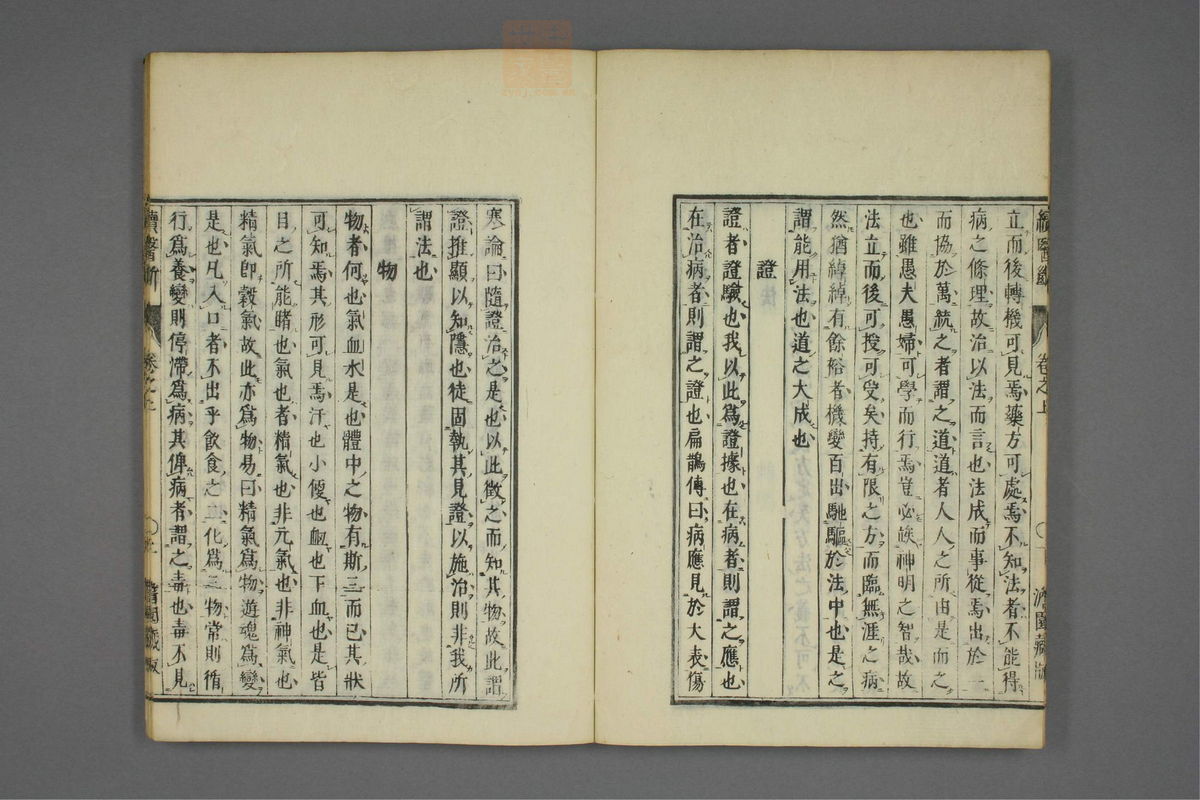 續醫斷
卷之上
立而後轉機可見焉藥方可處焉不知法者不能得
病之條理故治以法而言也法成而事從焉出於一
而協於萬統之者謂之道道者人人之所由是而之
也雖愚夫愚婦可學而行焉豈必俟神明之智哉故
法立而後可授可受矣持有限之方而臨無涯之病
然猶綽綽有餘裕者機變百出馳驅於法中也是之
謂能用法也道之大成也
證
證者證驗也我以此為證據也在病者則謂之應也
在治病者則謂之證也扁鵲傳曰病應見於大表傷
寒論曰隨證治之是也以此徵之而知其物故此謂
證推顯以知隱也徒固執其見證以施治則非我所
謂法也
物
物者何也氣血水是也體中之物有斯三而已其狀
可知焉其形可見焉汗也小便也衂也下血也是皆
目之所能睹也氣也者精氣也非元氣也非神氣也
精氣卽穀氣故此亦爲物易曰精氣爲物遊魂爲變
是也凡入口者不出乎飲食之二化爲三物常則循
行爲養變則停滯爲病其俾病者謂之毒也毒不見
續醫斷
卷之上